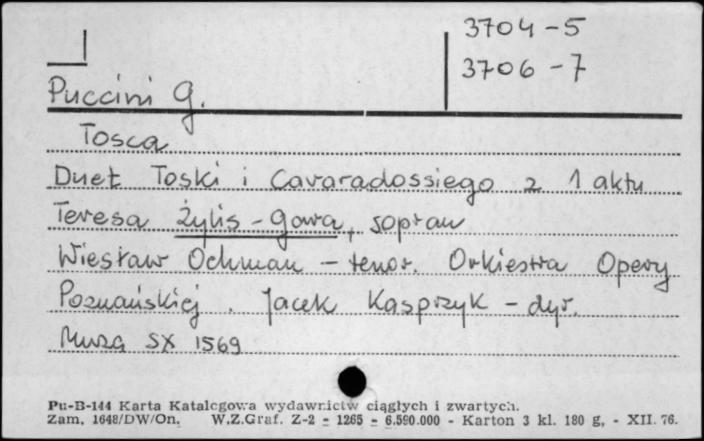 3704-5
3706-7
Puccini G.
Tosca
Duet Toski i Cavaradossiego z 1 aktu
Teresa Żylis-Gara, sopran
Wiesław Ochman - tenor. Orkiestra Opery
Poznańskiej. Jacek Kasprzyk - dyr.
Muza SX 1569
Pu-B-144 Karta Katalogowa wydawnictw ciągłych i zwartych.
Zam. 1648/DW/On. W.Z.Graf. Z-2 - 1265 - 6.590.000 - Karton 3 kl. 180 g, - XII. 76.